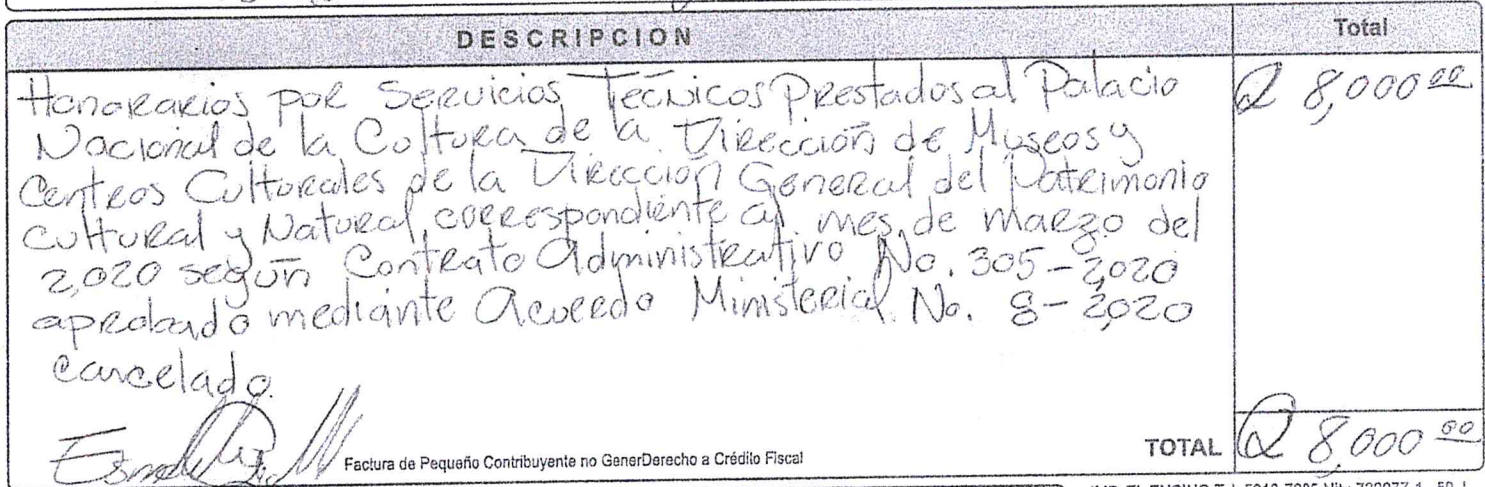 DESCRIPCION Total
Honorarios por Servicios Tecnicos Prestados al Palacio Q 8,000.00
Nacional de la Cultura de la Dirección de Museos y
Centros Culturales de la Dirección General del Patrimonio
Cultural y Natural, correspondiente al mes de marzo del
2,020 según Contrato Administrativo No. 305-2,020
aprobado mediante Acuerdo Ministerial No. 8-2,020
cancelado.
Factura de Pequeño Contribuyente no GenerDerecho a Crédito Fiscal
TOTAL Q 8,000.00